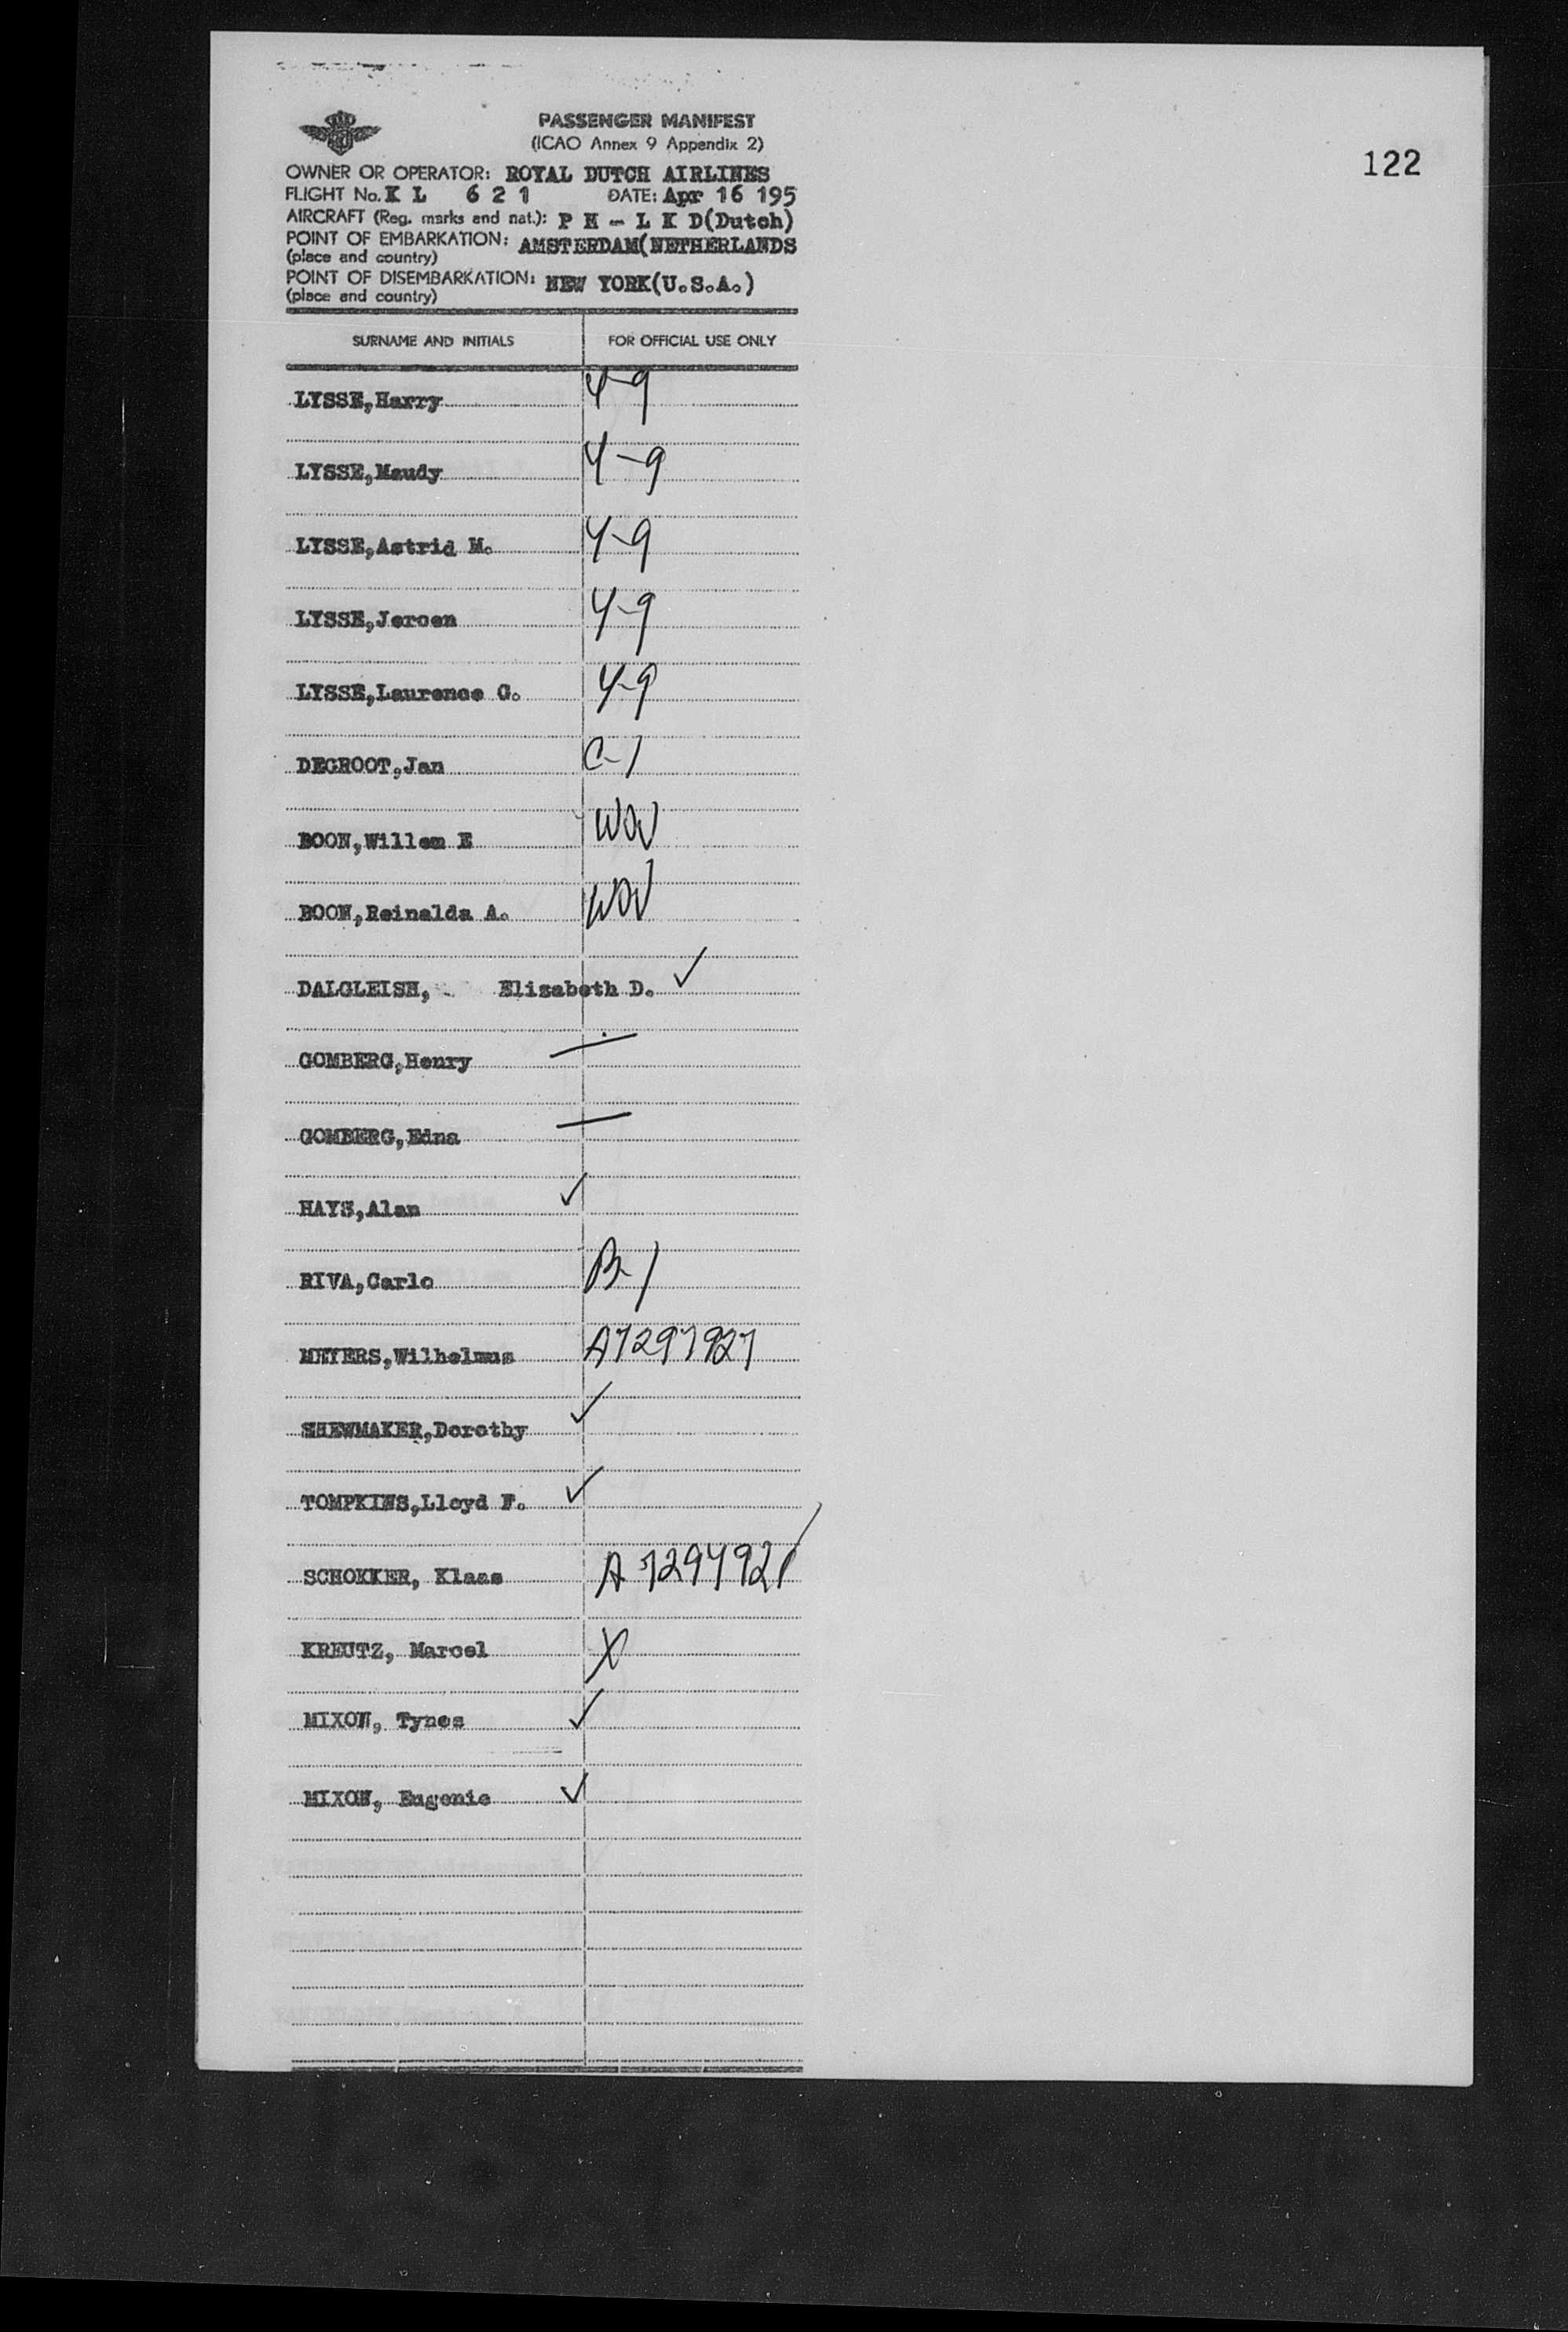 PASSENGER MANIFEST
(ICAO Annex 9 Appendix 2)
122
OWNER OR OPERATOR: ROYAL DUTCH AIRLINES
FLIGHT No. K L 6 2 1 DATE: Apr 16 195
AIRCRAFT (Reg. marks and nat.): P H - L K D(Dutch)
POINT OF EMBARKATION: AMSTERDAM(NETHERLANDS
(place and country)
POINT OF DISEMBARKATION: NEW YORK(U.S.A.)
(place and country)
SURNAME AND INITIALS FOR OFFICIAL USE ONLY
LYSSE,Harry 4-9
LYSSE,Maudy 4-9
LYSSE,Astrid M. 4-9
LYSSE,Jeroen 4-9
LYSSE,Laurence G. 4-9
DEGROOT,Jan C-1
BOON,Willem E
BOON,Reinalda A.
DALGLEISH, Elizabeth D. ✓
GOMBERG,Henry —
GOMBERG,Edna —
HAYS,Alan ✓
RIVA,Carlo B-1
MEYERS,Wilhelmus A7297927
SHEWMAKER,Dorothy ✓
TOMPKINS,Lloyd F. ✓
SCHOKKER, Klaas
KREUTZ, Marcel X
MIXON, Tynes ✓
MIXON, Eugenie ✓